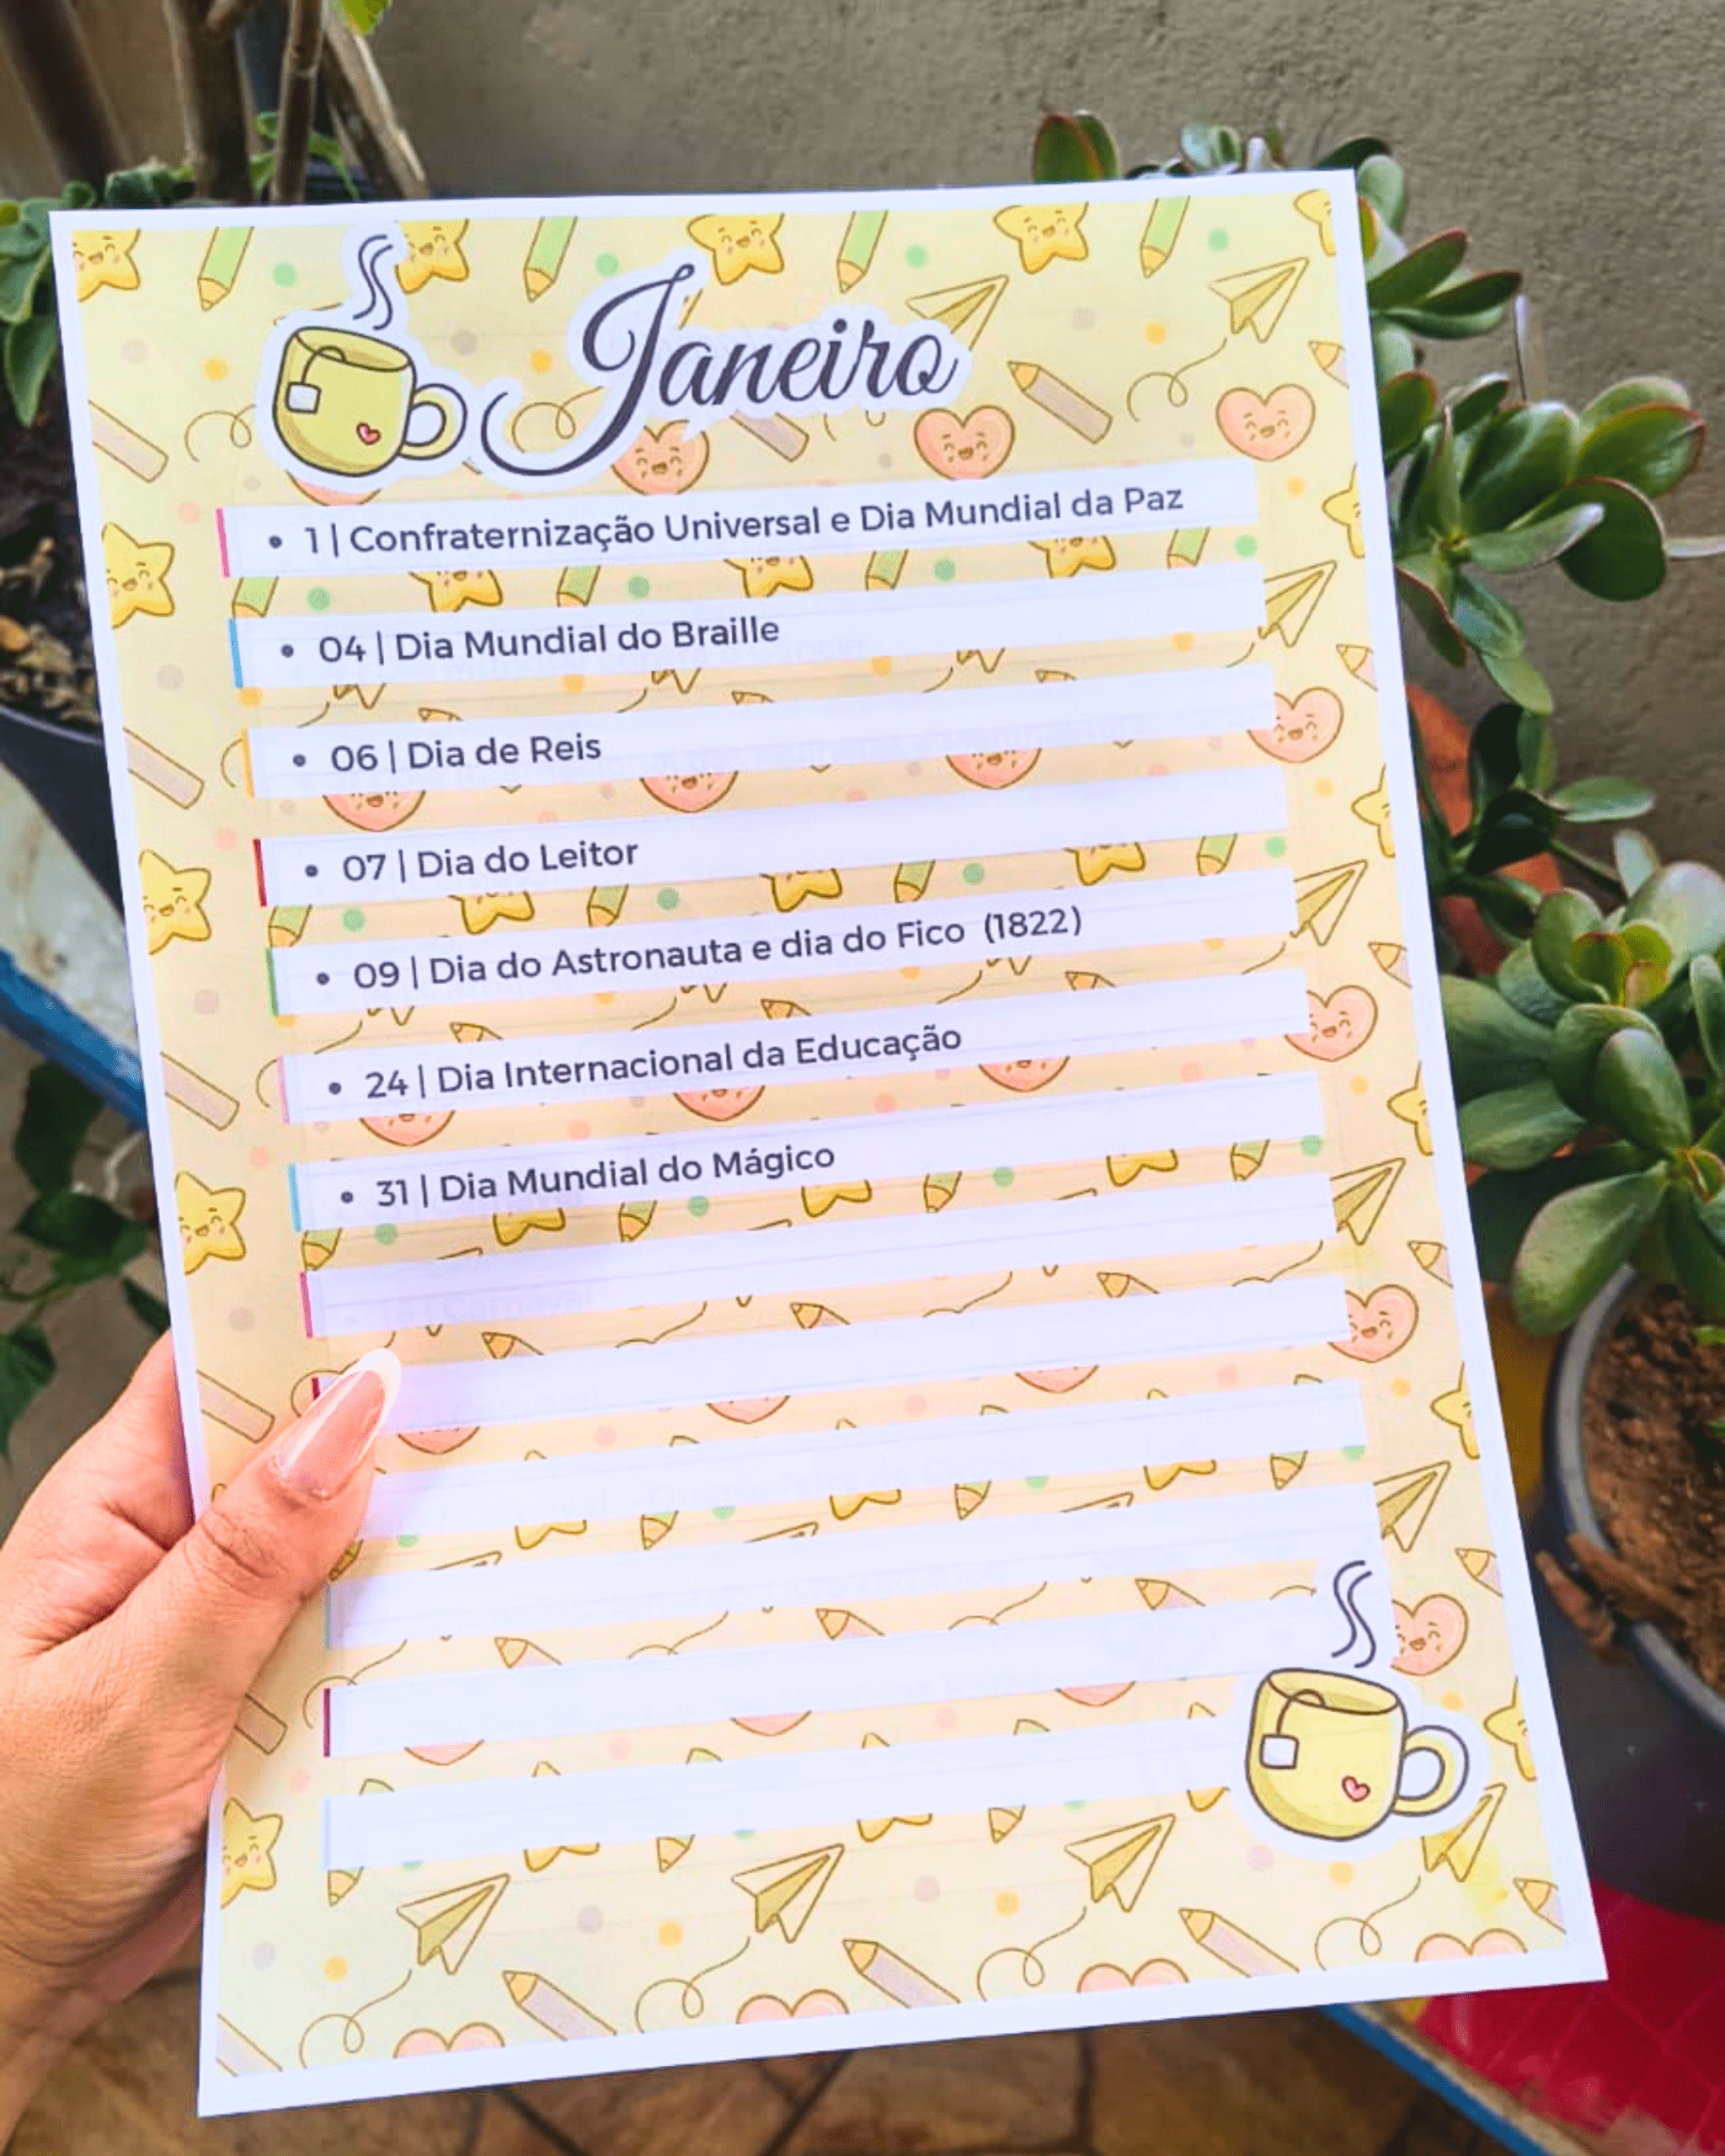 Janeiro
• 1 | Confraternização Universal e Dia Mundial da Paz
• 04 | Dia Mundial do Braille
• 06 | Dia de Reis
• 07 | Dia do Leitor
• 09 | Dia do Astronauta e dia do Fico (1822)
• 24 | Dia Internacional da Educação
• 31 | Dia Mundial do Mágico